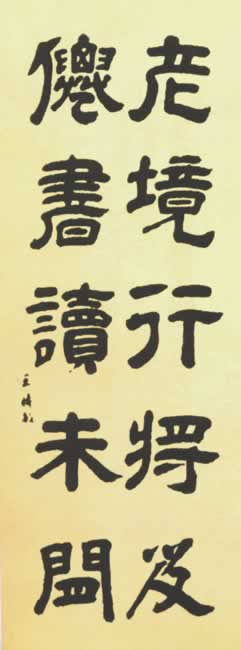 老境行將及
僊書讀未